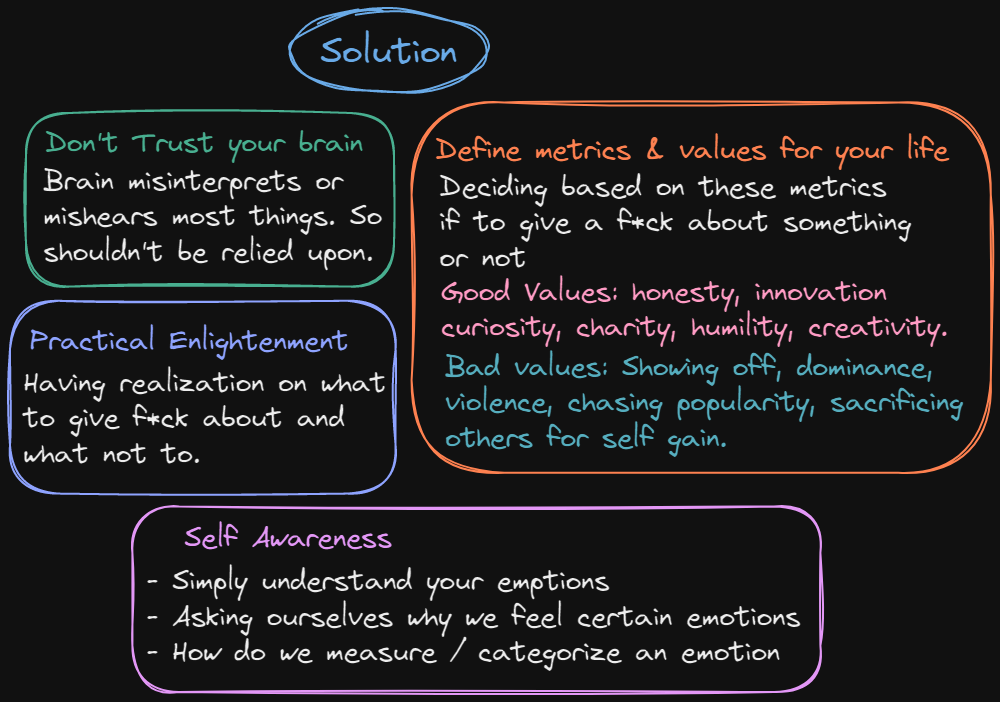 Solution
Don't Trust your brain
Brain misinterprets or
mishears most things. So
shouldn't be relied upon.
Define metrics & values for your life
Deciding based on these metrics
if to give a f*ck about something
or not
Good Values: honesty, innovation
curiosity, charity, humility, creativity.
Bad values: Showing off, dominance,
violence, chasing popularity, sacrificing
others for self gain.
Practical Enlightenment
Having realization on what
to give f*ck about and
what not to.
Self Awareness
- Simply understand your emptions
- Asking ourselves why we feel certain emotions
- How do we measure / categorize an emotion